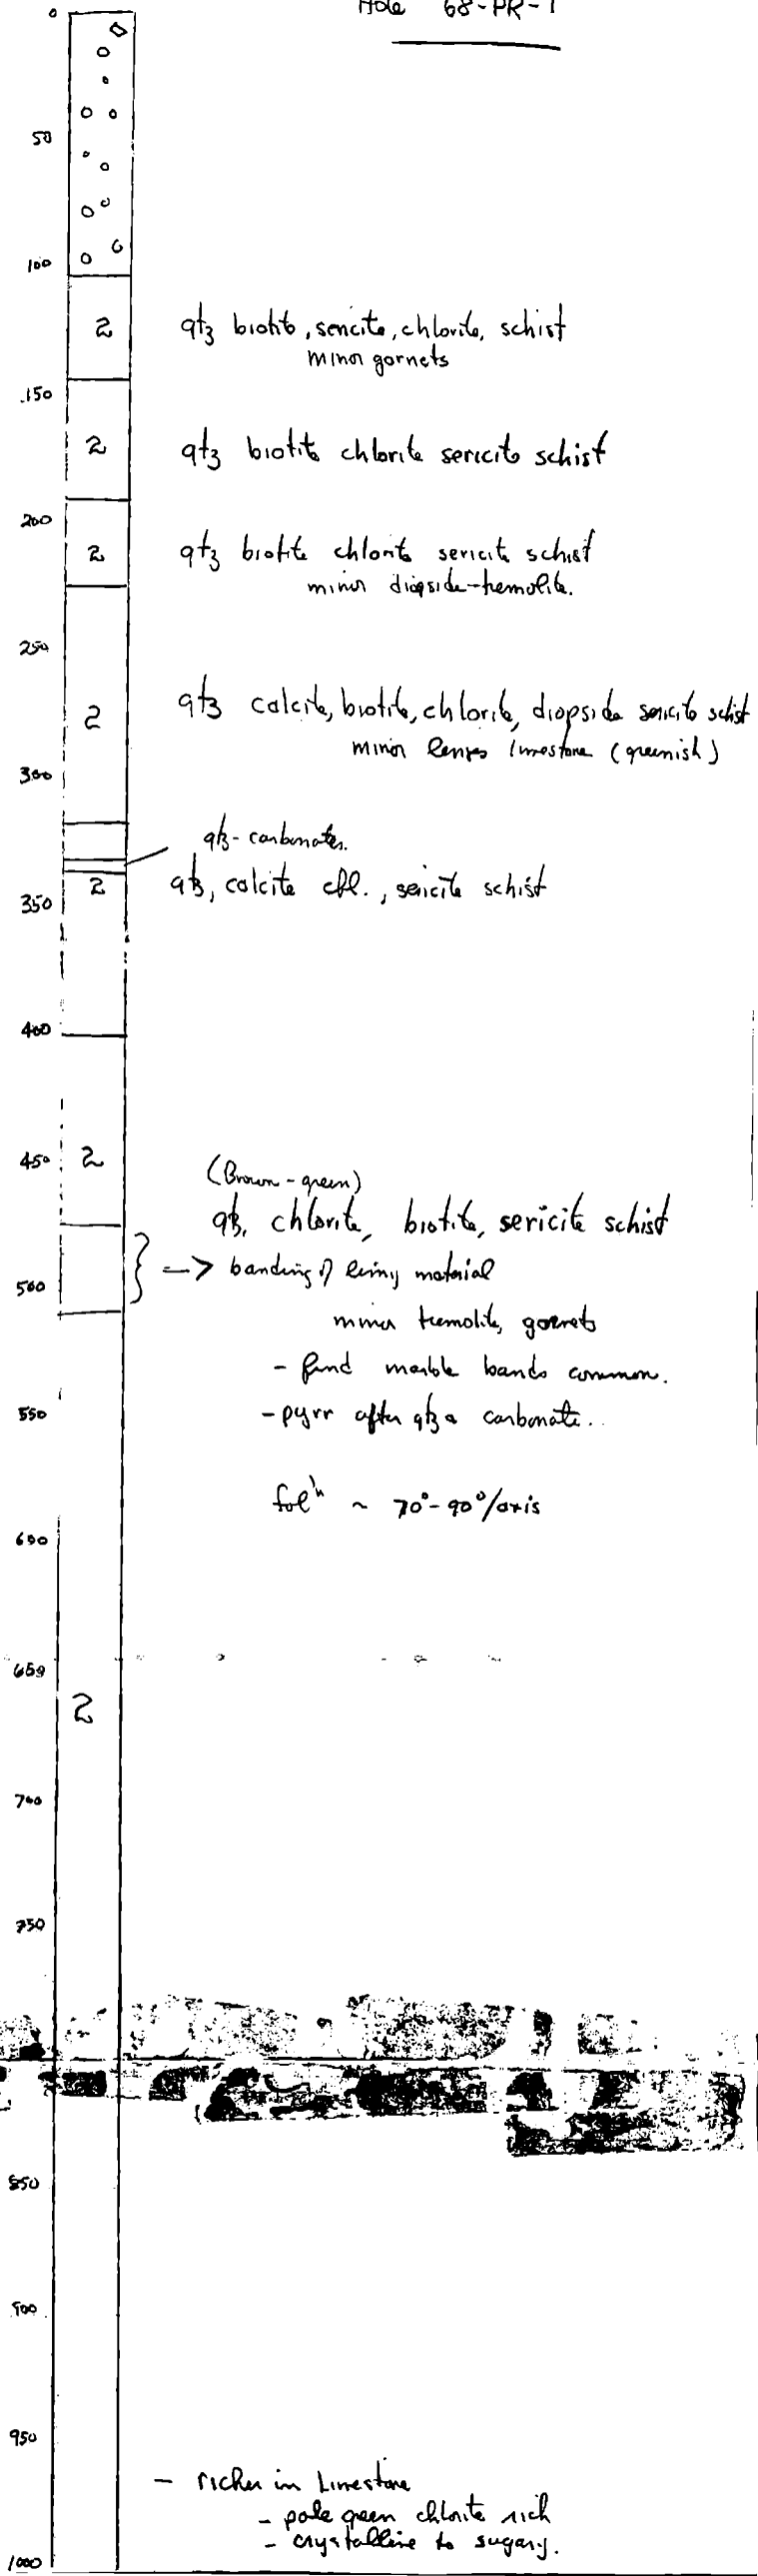 Hole 68-PR-1
0
50
100
2 qtz biotite, sericite, chlorite, schist
minor garnets
150
2 qtz biotite chlorite sericite schist
200
2 qtz biotite chlorite sericite schist
minor diopside-tremolite.
250
2 qtz calcite, biotite, chlorite, diopside sericite schist
minor lenses limestone (greenish)
300
qtz-carbonates.
2 qtz, calcite chl., sericite schist
350
400
450 2
(Brown-green)
qtz, chlorite, biotite, sericite schist
=> banding of limy material
500
minor tremolite, garnets
- marble bands common.
550
- pyrr after qtz carbonate..
fol'n ~ 70°-90°/axis
600
650
2
700
750
850
900
950
- richer in Limestone
- pale green chlorite rich
- crystalline to sugary.
1000